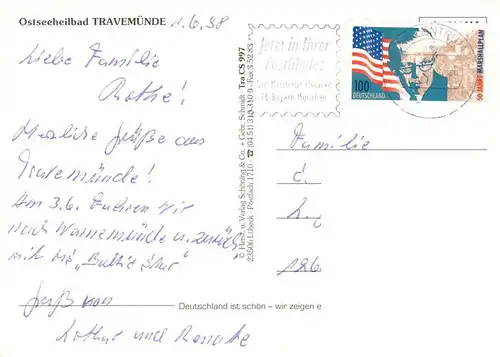 Ostseeheilbad TRAVEMÜNDE 1.6.98
Liebe Familie
Rothe!
Herzliche Grüße aus
Travemünde!
Am 3.6. fahren wir
nach Warnemünde u. zurück
mit MS „Baltic Star"
Gruß von
Lothar und Renate
© Herst. u. Verlag Schöning & Co. + Gebr. Schmidt · Tra CS 997
23506 Lübeck · Postfach 1710 · ☎ (04 51) 3 10 31 0 · Fax 3 52 83
Jetzt in Ihrer
Postfiliale:
FC Bayern München
100
DEUTSCHLAND
50 JAHRE MARSHALLPLAN
Familie
d.
126
Deutschland ist schön – wir zeigen e